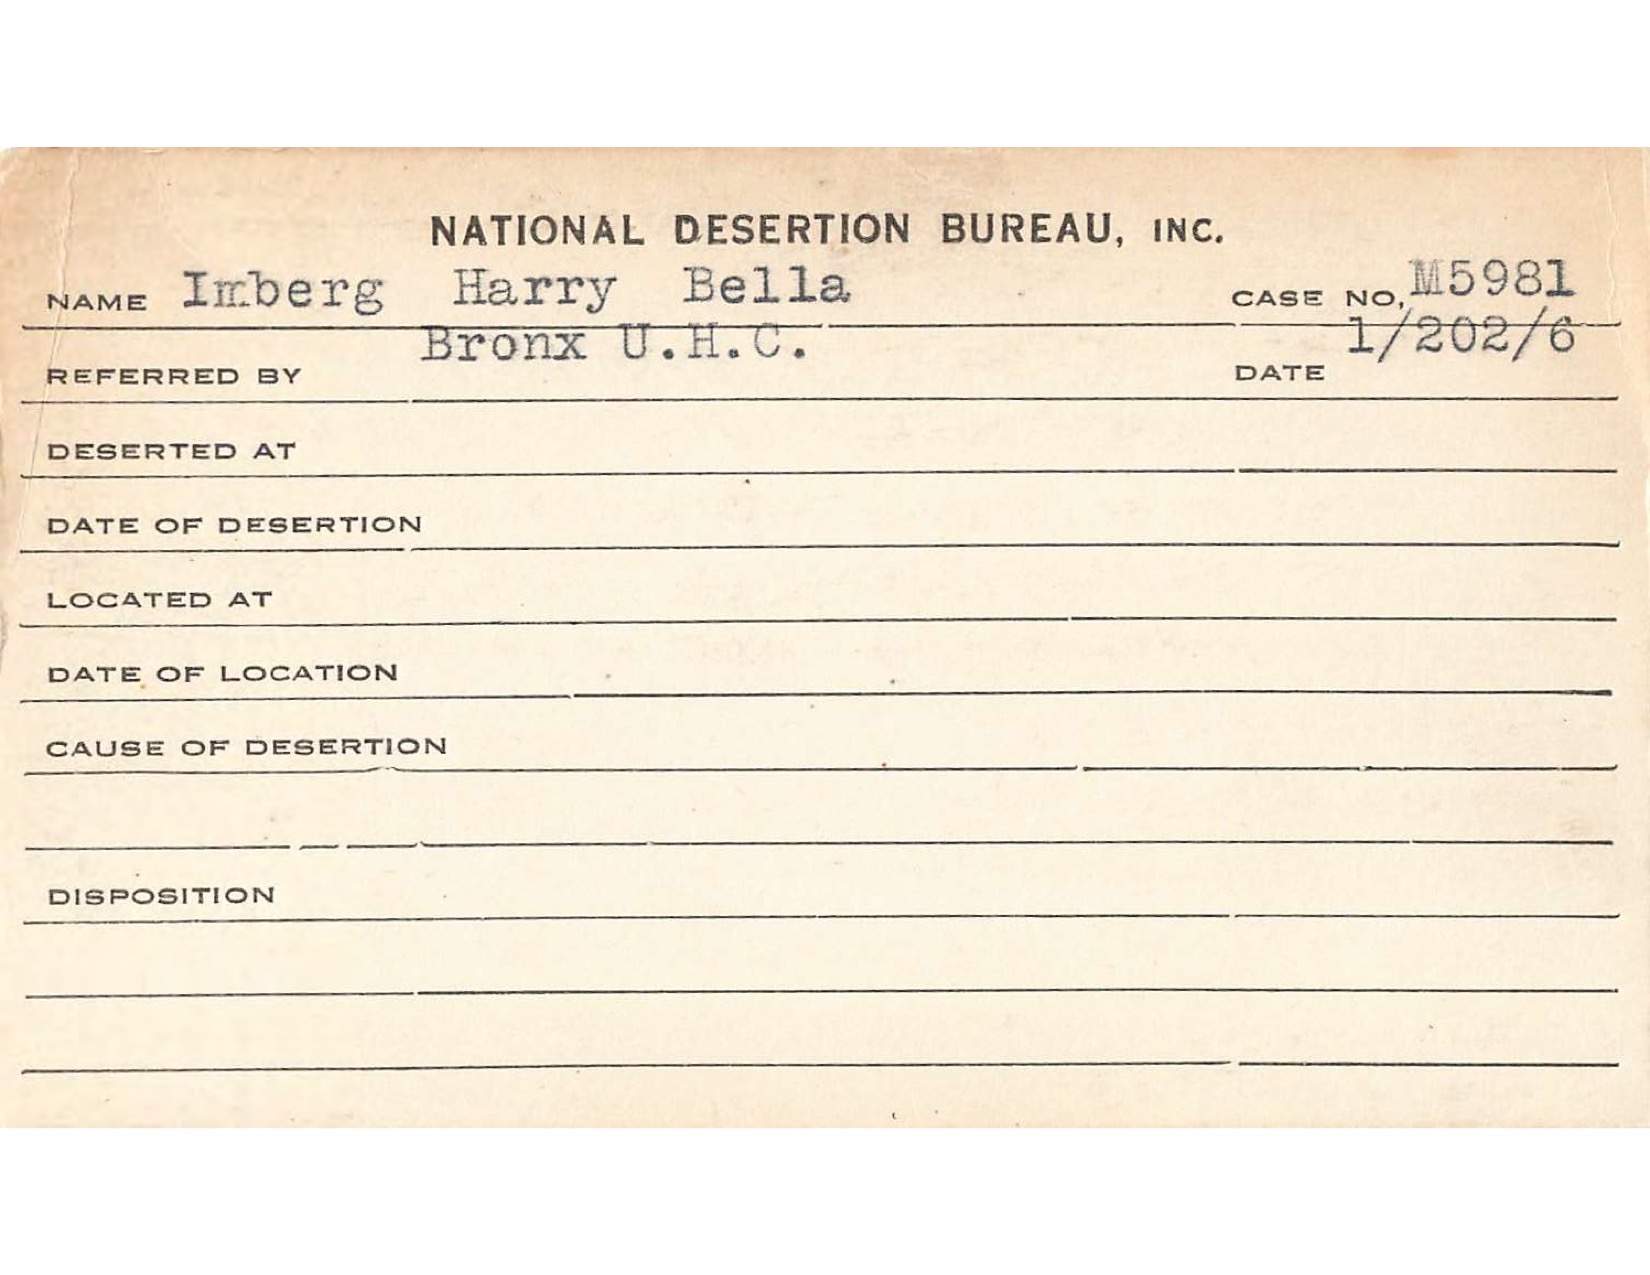 NATIONAL DESERTION BUREAU, INC.
NAME Imberg Harry Bella CASE NO, M5981
REFERRED BY Bronx U.H.C. DATE 1/202/6
DESERTED AT
DATE OF DESERTION
LOCATED AT
DATE OF LOCATION
CAUSE OF DESERTION
DISPOSITION